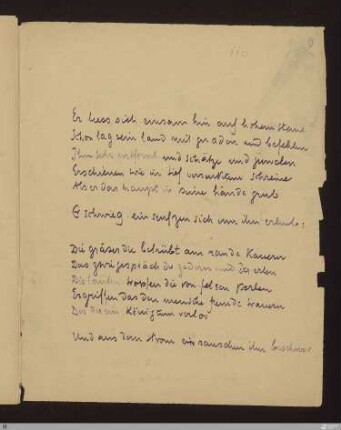 Er liess sich einsam hin auf hohem steine
Schon lag sein land mit zedern und
Ihm sehr entfernt und schätze und juwelen
Erschienen wie in tief versenktem schreine
Als er das haupt in seine hände grub
Er schwieg · ein seufzen sich um ihn erhub:
Die gräser die betrübt am rande kauern
Das zwiegespräch der zedern und der erlen
Die lauten tropfen die vom felsen perlen
Ergriffen das den menschen fremde trauern
Des der ein Königtum verlor
Und aus dem strom ein rauschen ihn